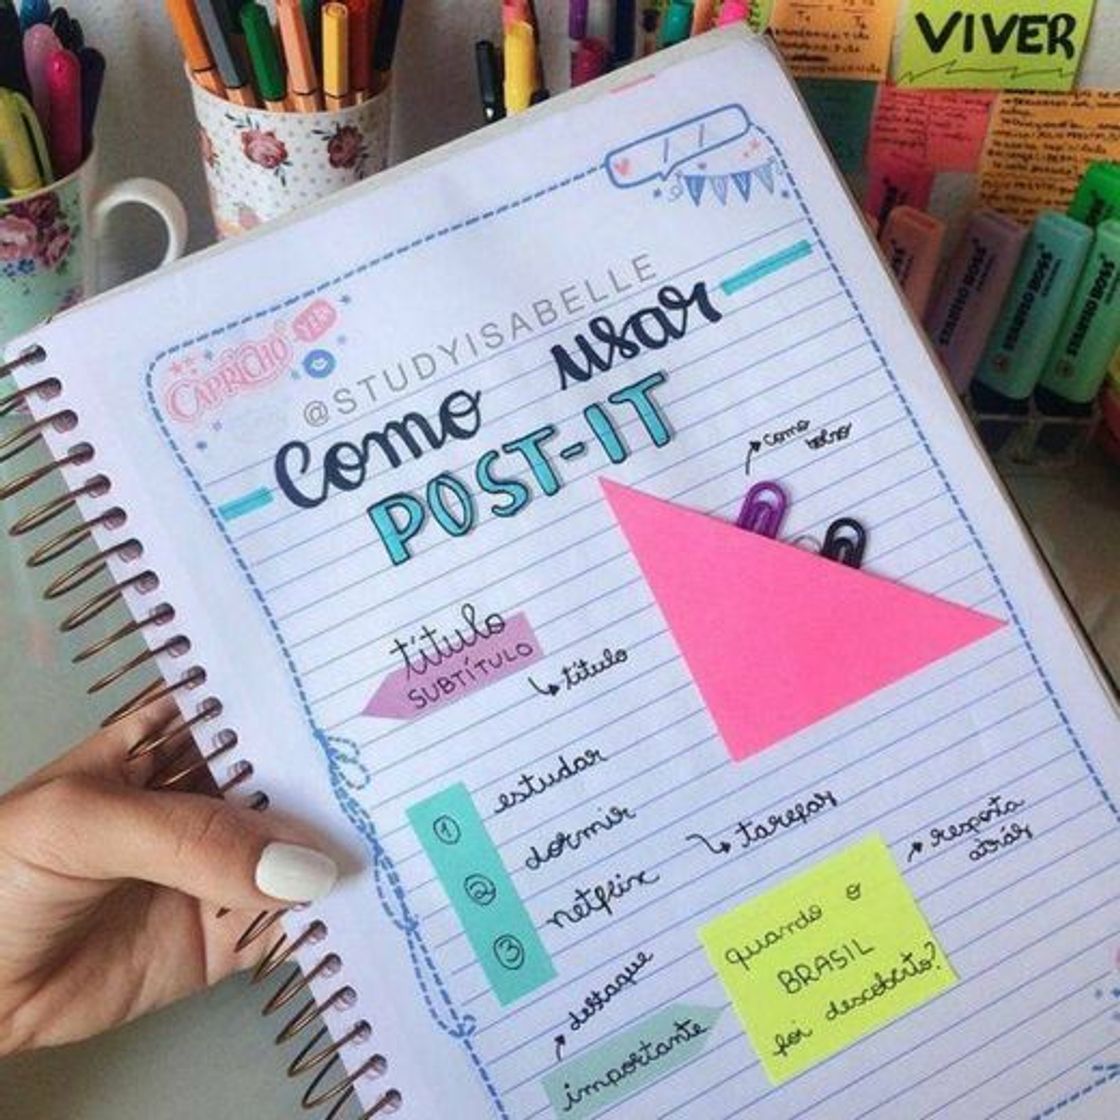 VIVER
CAPRICHO
YEP
@STUDYISABELLE
como usar
POST-IT
como
bolso
título
SUBTÍTULO
título
① estudar
② dormir
③ netflix
tarefas
resposta
atrás
quando o
BRASIL
foi descoberto?
destaque
importante
STABILO BOSS
STABILO BOSS
STABILO BOSS